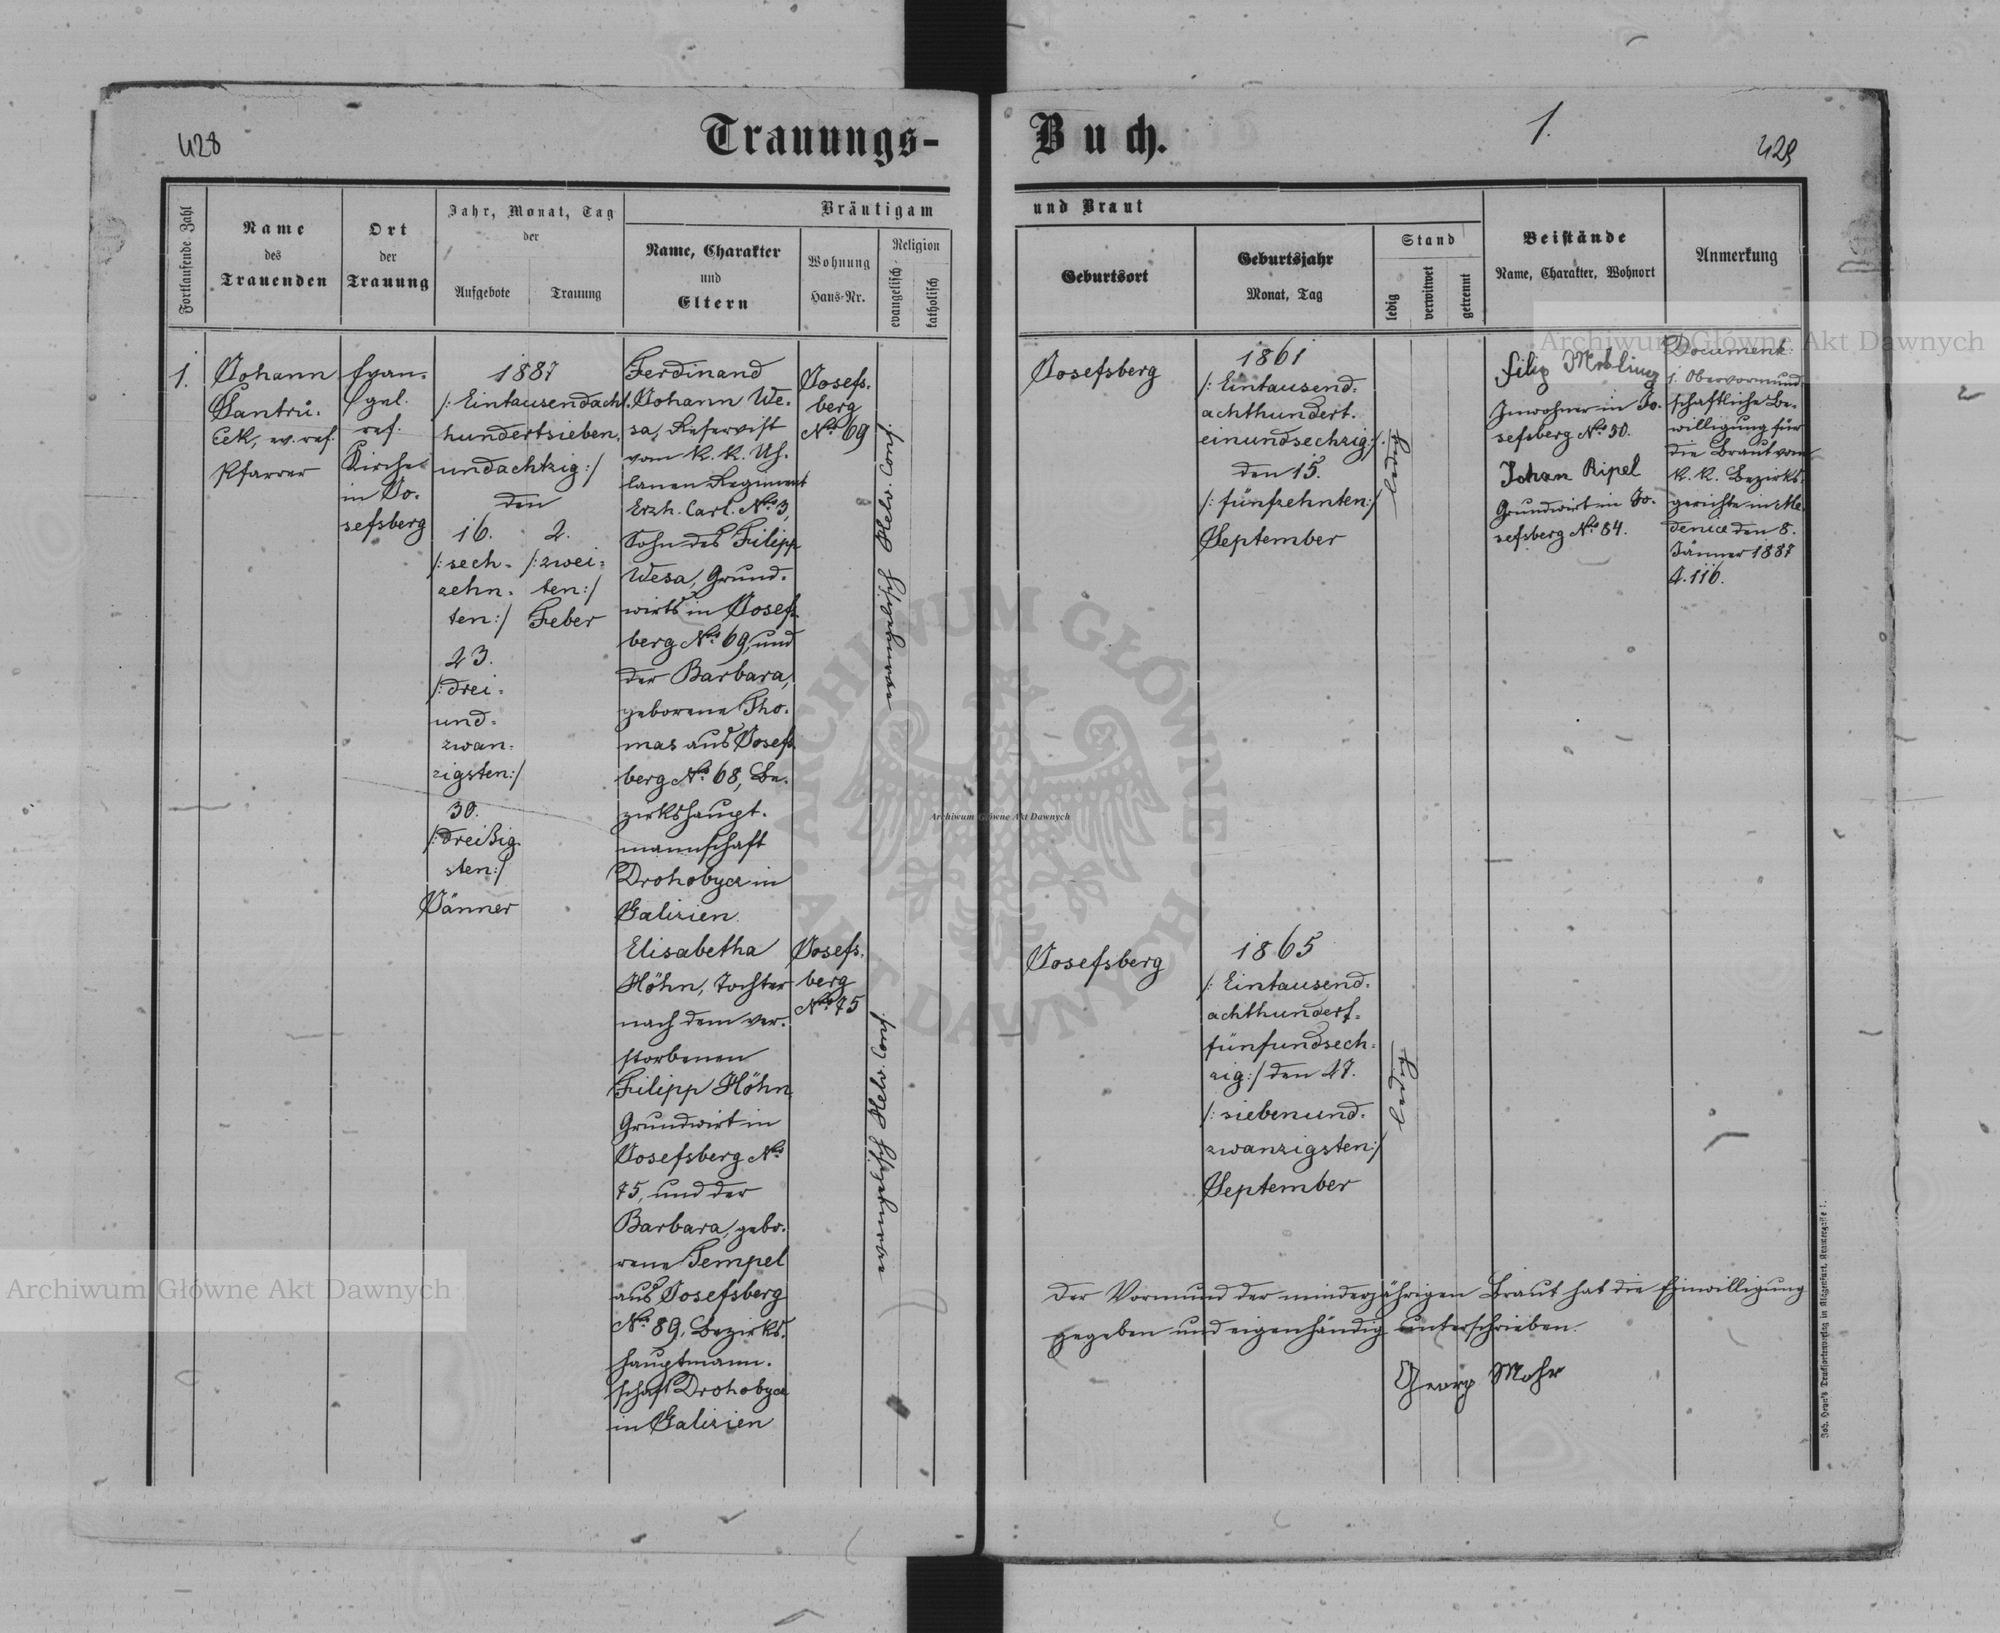 428
Trauungs-
Buch.
1.
429
Fortlaufende Zahl
Name
des
Trauenden
Ort
der
Trauung
Jahr, Monat, Tag
der
Aufgebote
Trauung
Bräutigam
Name, Charakter
und
Eltern
Wohnung
Haus-Nr.
Religion
evangelisch
katholisch
1.
Johann
Santrů-
ček, ev. ref.
Pfarrer
Evan-
gel.
ref.
Kirche
in Jo-
sefsberg
1887
/: Eintausendacht-
hundertsieben-
undachtzig :/
den
16.
/: sech-
zehn-
ten :/
23.
/: drei-
und-
zwan-
zigsten :/
30.
/: dreißig-
sten :/
Jänner
2.
/: zwei-
ten :/
Feber
Ferdinand
Johann We-
sa, Reservist
vom k. k. Uh-
lanen Regiment
Erzh. Carl. No. 3,
Sohn des Filipp
Wesa, Grund-
wirts in Josefs-
berg No. 69, und
der Barbara,
geborene Tho-
mas aus Josefs-
berg No. 68, Be-
zirkshaupt-
mannschaft
Drohobycz in
Galizien.
Josefs-
berg
No. 69
evangelisch Helv. Conf.
Elisabetha
Höhn, Tochter
nach dem ver-
storbenen
Filipp Höhn
Grundwirt in
Josefsberg No.
75, und der
Barbara, gebo-
rene Tempel
aus Josefsberg
No. 89, Bezirks-
hauptmann-
schaft Drohobycz
in Galizien
Josefs-
berg
No. 75
evangelisch Helv. Conf.
und Braut
Geburtsort
Geburtsjahr
Monat, Tag
Stand
ledig
verwitwet
getrennt
Beistände
Name, Charakter, Wohnort
Anmerkung
Josefsberg
1861
/: Eintausend-
achthundert-
einundsechzig :/
den 15.
/: fünfzehnten :/
September
ledig
Filip
Inwohner in Jo-
sefsberg No. 50.
Johan Ripel
Grundwirt in Jo-
sefsberg No. 84.
Document:
1. Obervormund-
schaftliche Be-
willigung für
die Braut vom
k. k. Bezirks-
gerichte in Me-
denice den 8.
Jänner 1887
Z. 116.
Josefsberg
1865
/: Eintausend-
achthundert-
fünfundsech-
zig :/ den 27.
/: siebenund-
zwanzigsten :/
September
ledig
Der Vormund der minderjährigen Braut hat die Einwilligung
gegeben und eigenhändig unterschrieben.
Georg Mohr
Joh. Heyn's Drucksortenverlag in Klagenfurt, Kramergasse 1.
Archiwum Główne Akt Dawnych
Archiwum Główne Akt Dawnych
Archiwum Główne Akt Dawnych
ARCHIWUM GŁÓWNE AKT DAWNYCH